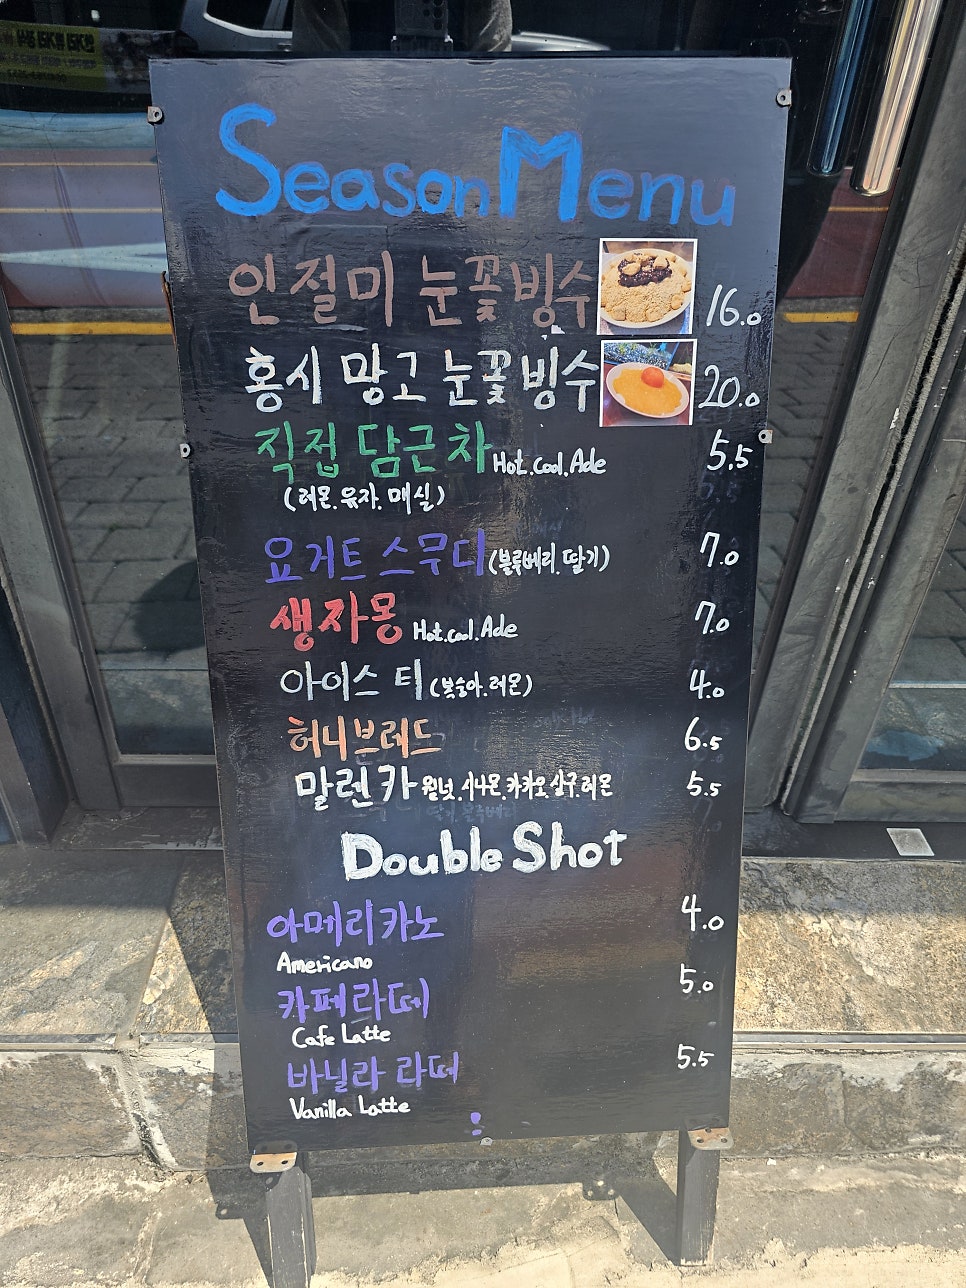 Season Menu
인절미 눈꽃빙수 16.0
홍시 망고 눈꽃빙수 20.0
직접 담근차 Hot.Cool.Ade 5.5
(레몬.유자.매실)
요거트 스무디 (블루베리.딸기) 7.0
생자몽 Hot.Cool.Ade 7.0
아이스 티 (복숭아.레몬) 4.0
허니브레드 6.5
말렌카 월넛.시나몬.카카오.살구.레몬 5.5
Double Shot
아메리카노 4.0
Americano
카페라떼 5.0
Cafe Latte
바닐라 라떼 5.5
Vanilla Latte